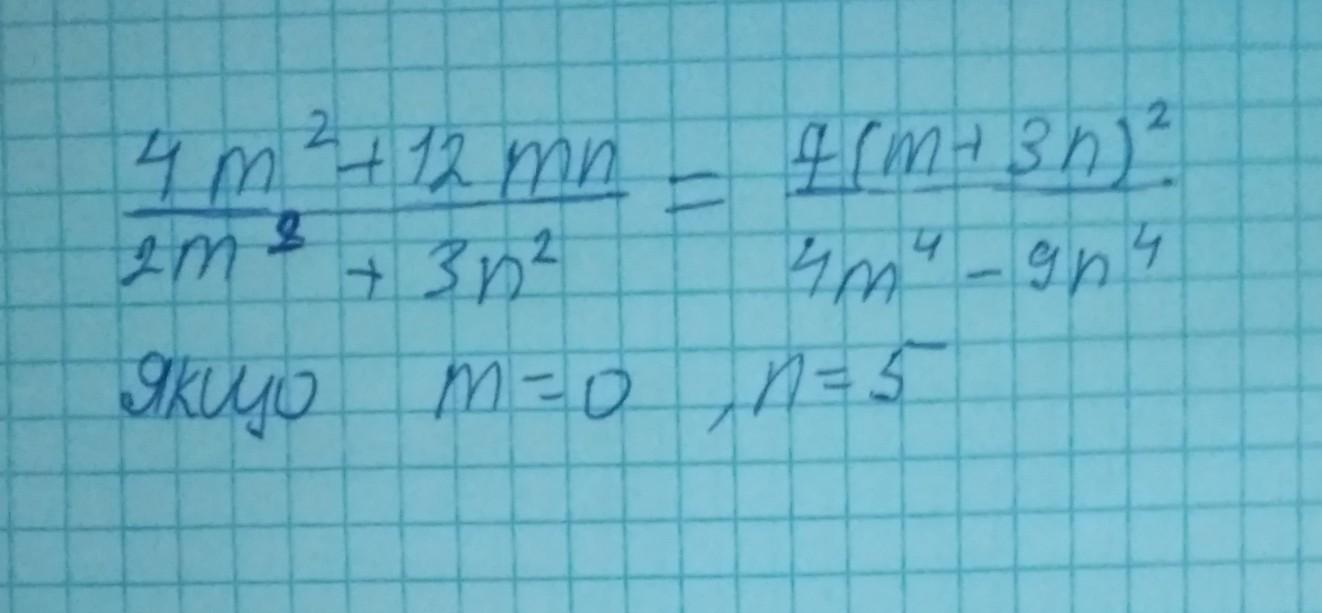 4m² + 12mn / 2m² + 3n² = 4(m + 3n)² / 4m⁴ - 9n⁴
якщо m = 0 , n = 5